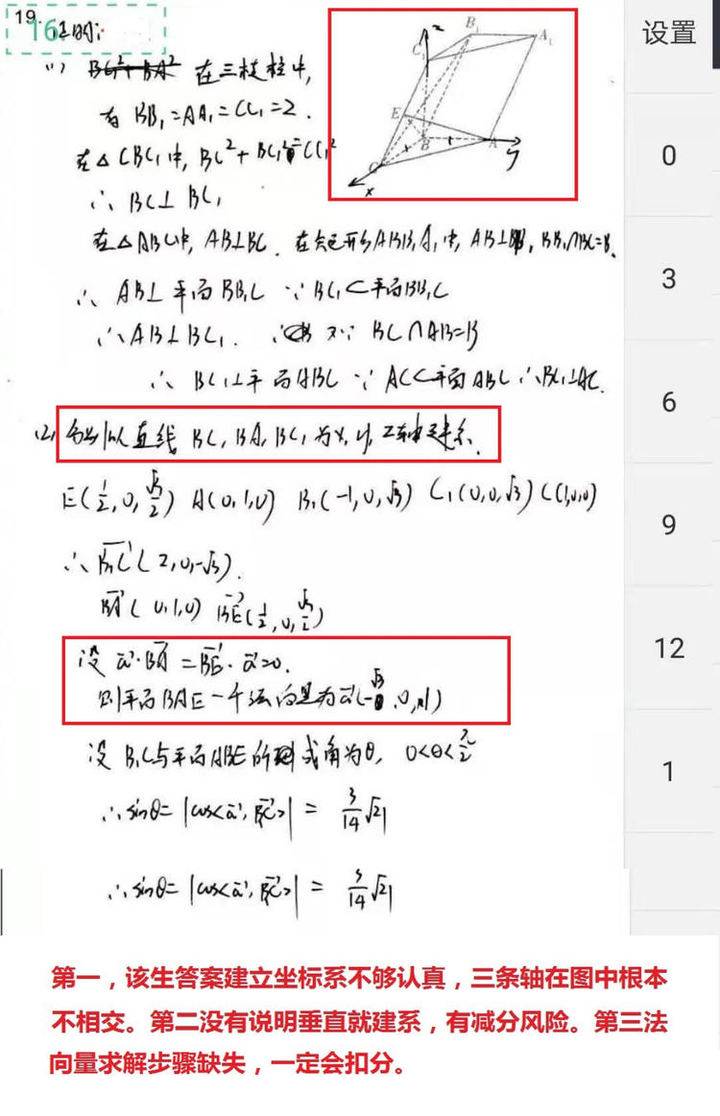 19.
16 证明:
设置
(1) 在三棱柱中,
有 BB₁=AA₁=CC₁=2.
在△CBC₁中, BC²+BC₁²=CC₁²
∴ BC⊥BC₁
在△ABC中, AB⊥BC. 在矩形ABB₁A₁中, AB⊥BB₁, BB₁∩BC=B.
∴ AB⊥平面BB₁C ∵ BC₁⊂平面BB₁C
∴AB⊥BC₁. 又∵ BC∩AB=B
∴ BC₁⊥平面ABC ∵ AC⊂平面ABC ∴BC₁⊥AC.
z
B₁
A₁
C₁
E
B
A
C
y
x
(2) 分别以直线 BC, BA, BC₁ 为x, y, z轴建系.
E(1/2, 0, √3/2) A(0,1,0) B₁(-1,0,√3) C₁(0,0,√3) C(1,0,0)
∴ B₁C(2,0,-√3).
BA(0,1,0) BE(1/2, 0, √3/2)
设 a·BA=BE·a=0.
则平面BAE一个法向量为a(-√3,0,1)
设 B₁C与平面ABE所成角为θ, 0<θ<π/2
∴sinθ=|cos<a,B₁C>| = 3/14 √21
∴sinθ=|cos<a,B₁C>| = 3/14 √21
0
3
6
9
12
1
第一，该生答案建立坐标系不够认真，三条轴在图中根本
不相交。第二没有说明垂直就建系，有减分风险。第三法
向量求解步骤缺失，一定会扣分。